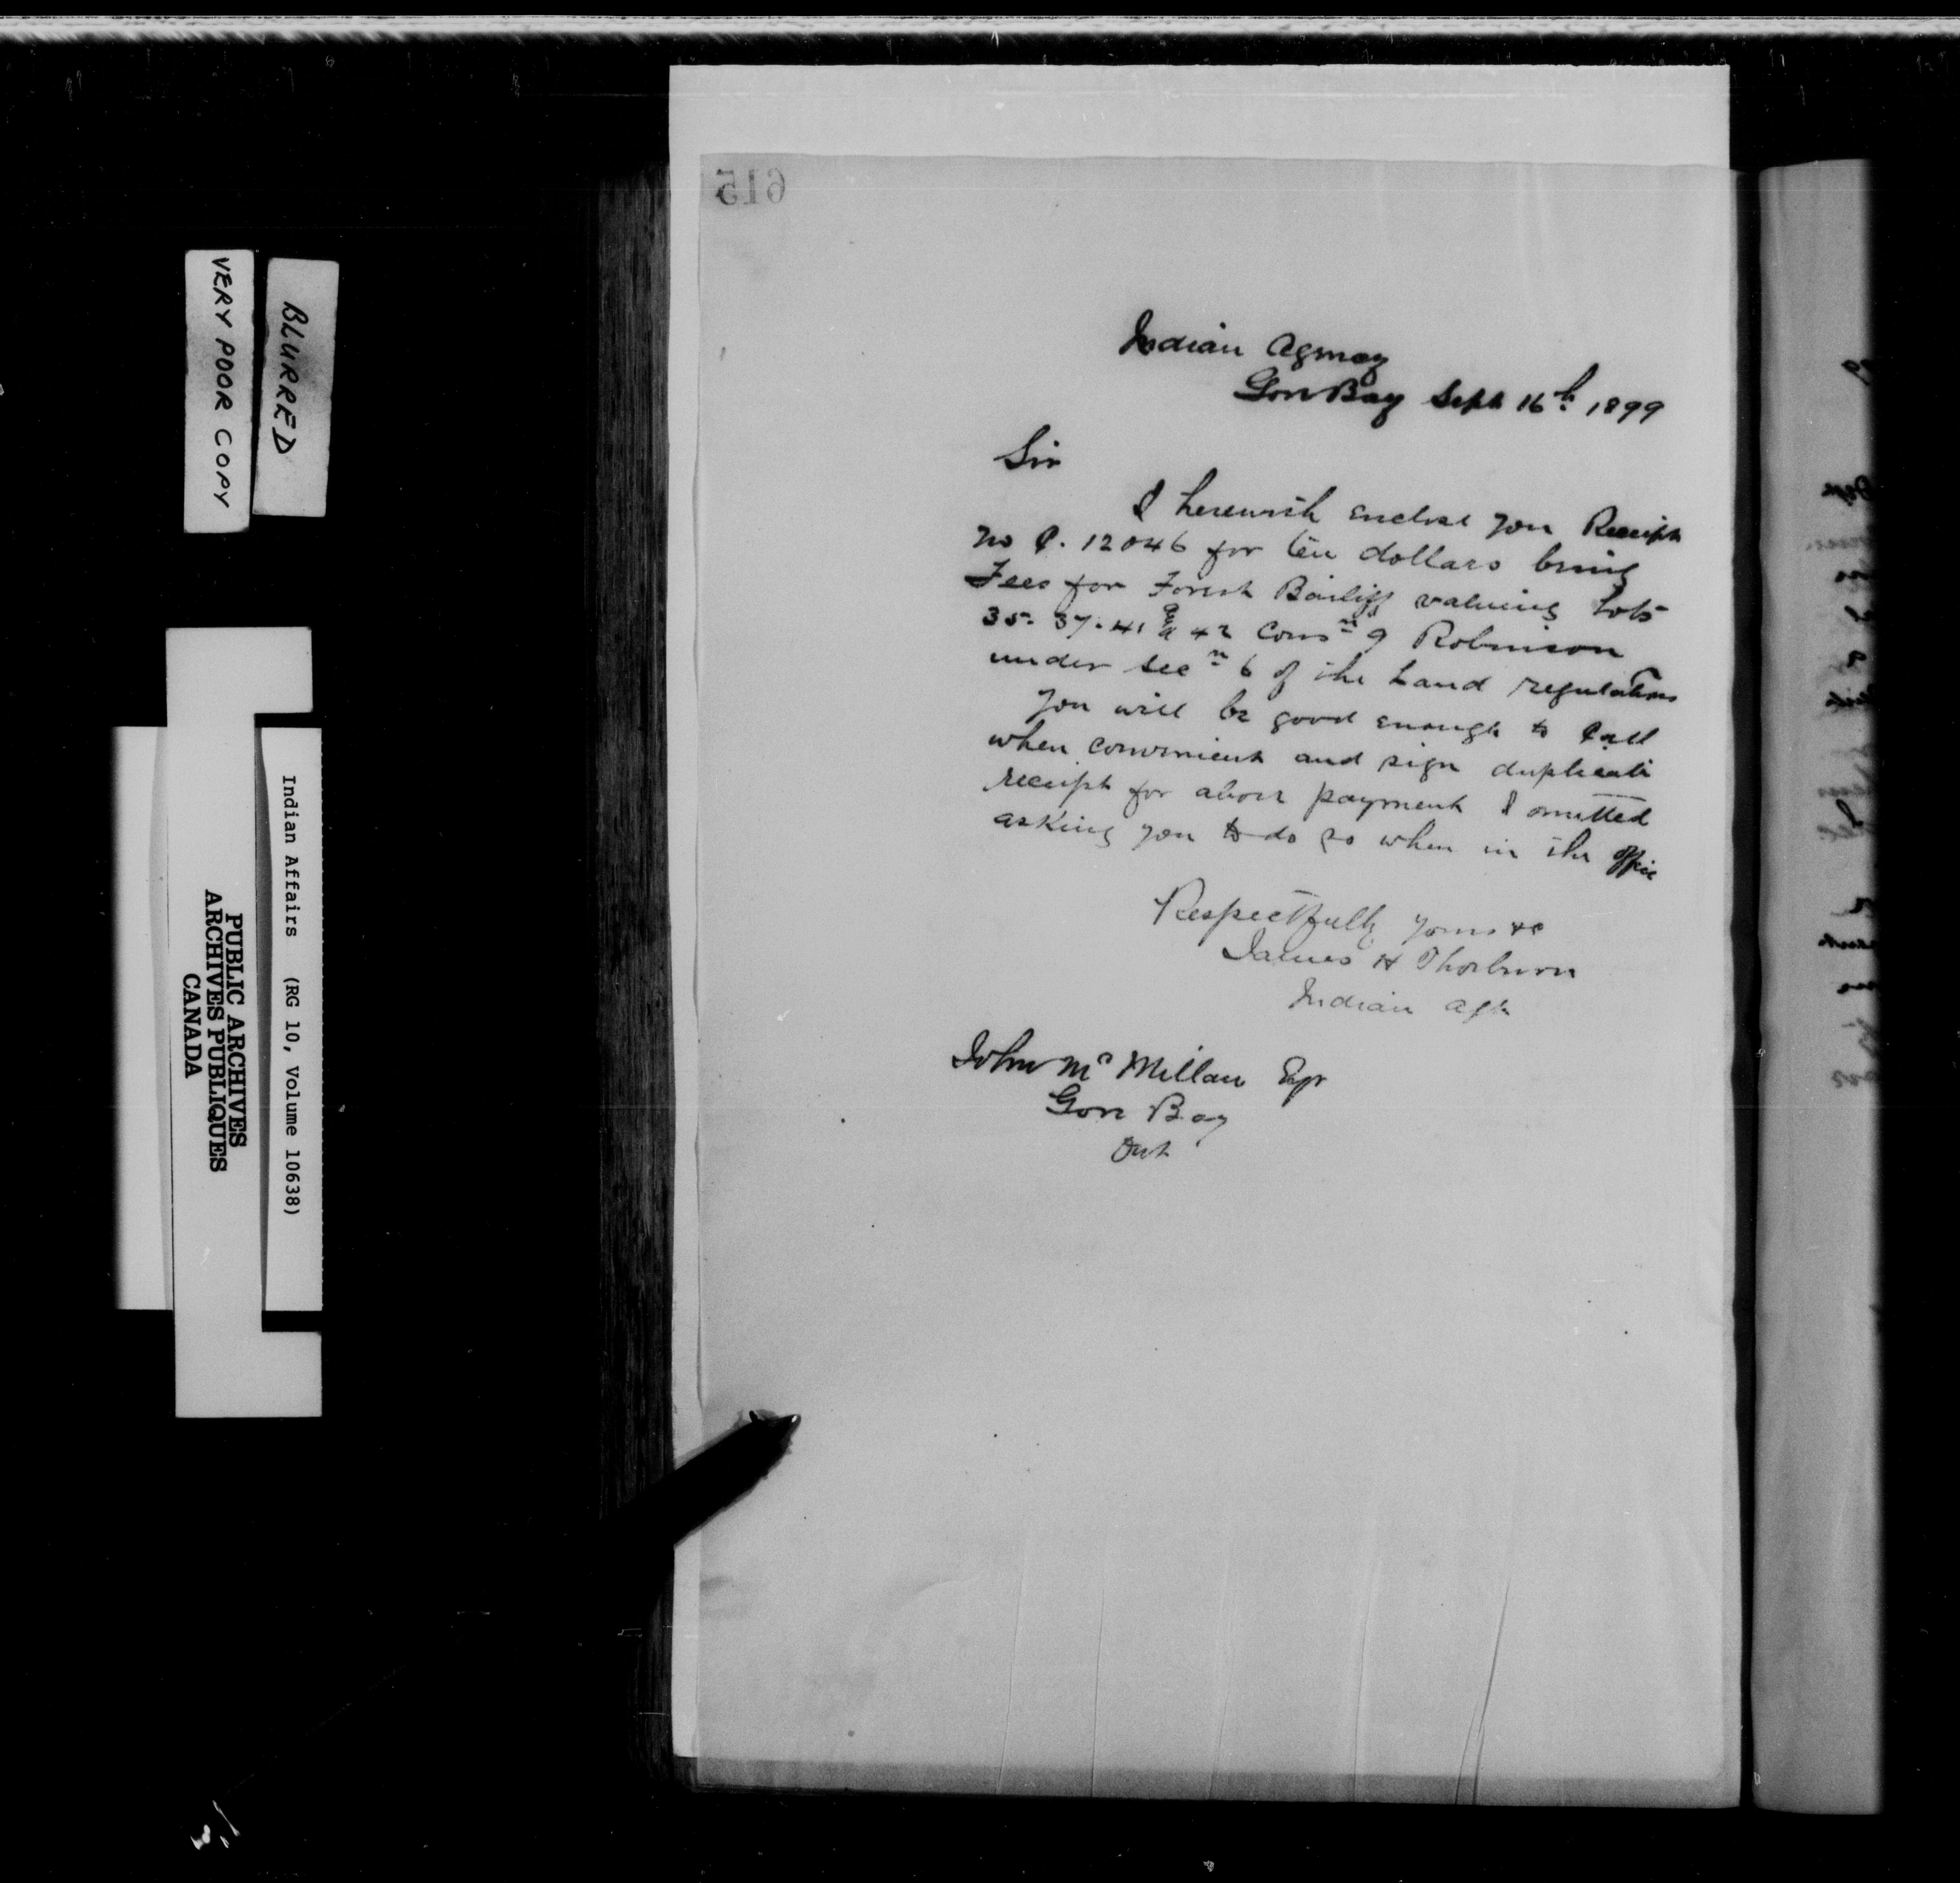 615
Indian Agency
Gore Bay Sept 16th 1899
Sir
I herewith enclose you Receipt
No C. 12046 for ten dollars being
Fees for Forest Bailiff valuing Lots
35. 37. 41 & 42 Conn 9 Robinson
under Secn 6 of the Land regulations
You will be good enough to Call
when convenient and sign duplicate
receipt for above payment I omitted
asking you to do so when in the office
Respectfully yours &c
James H Thorburn
Indian Agt
John Mc Millan Esqr
Gore Bay
Ont
BLURRED
VERY POOR COPY
Indian Affairs (RG 10, Volume 10638)
PUBLIC ARCHIVES
ARCHIVES PUBLIQUES
CANADA